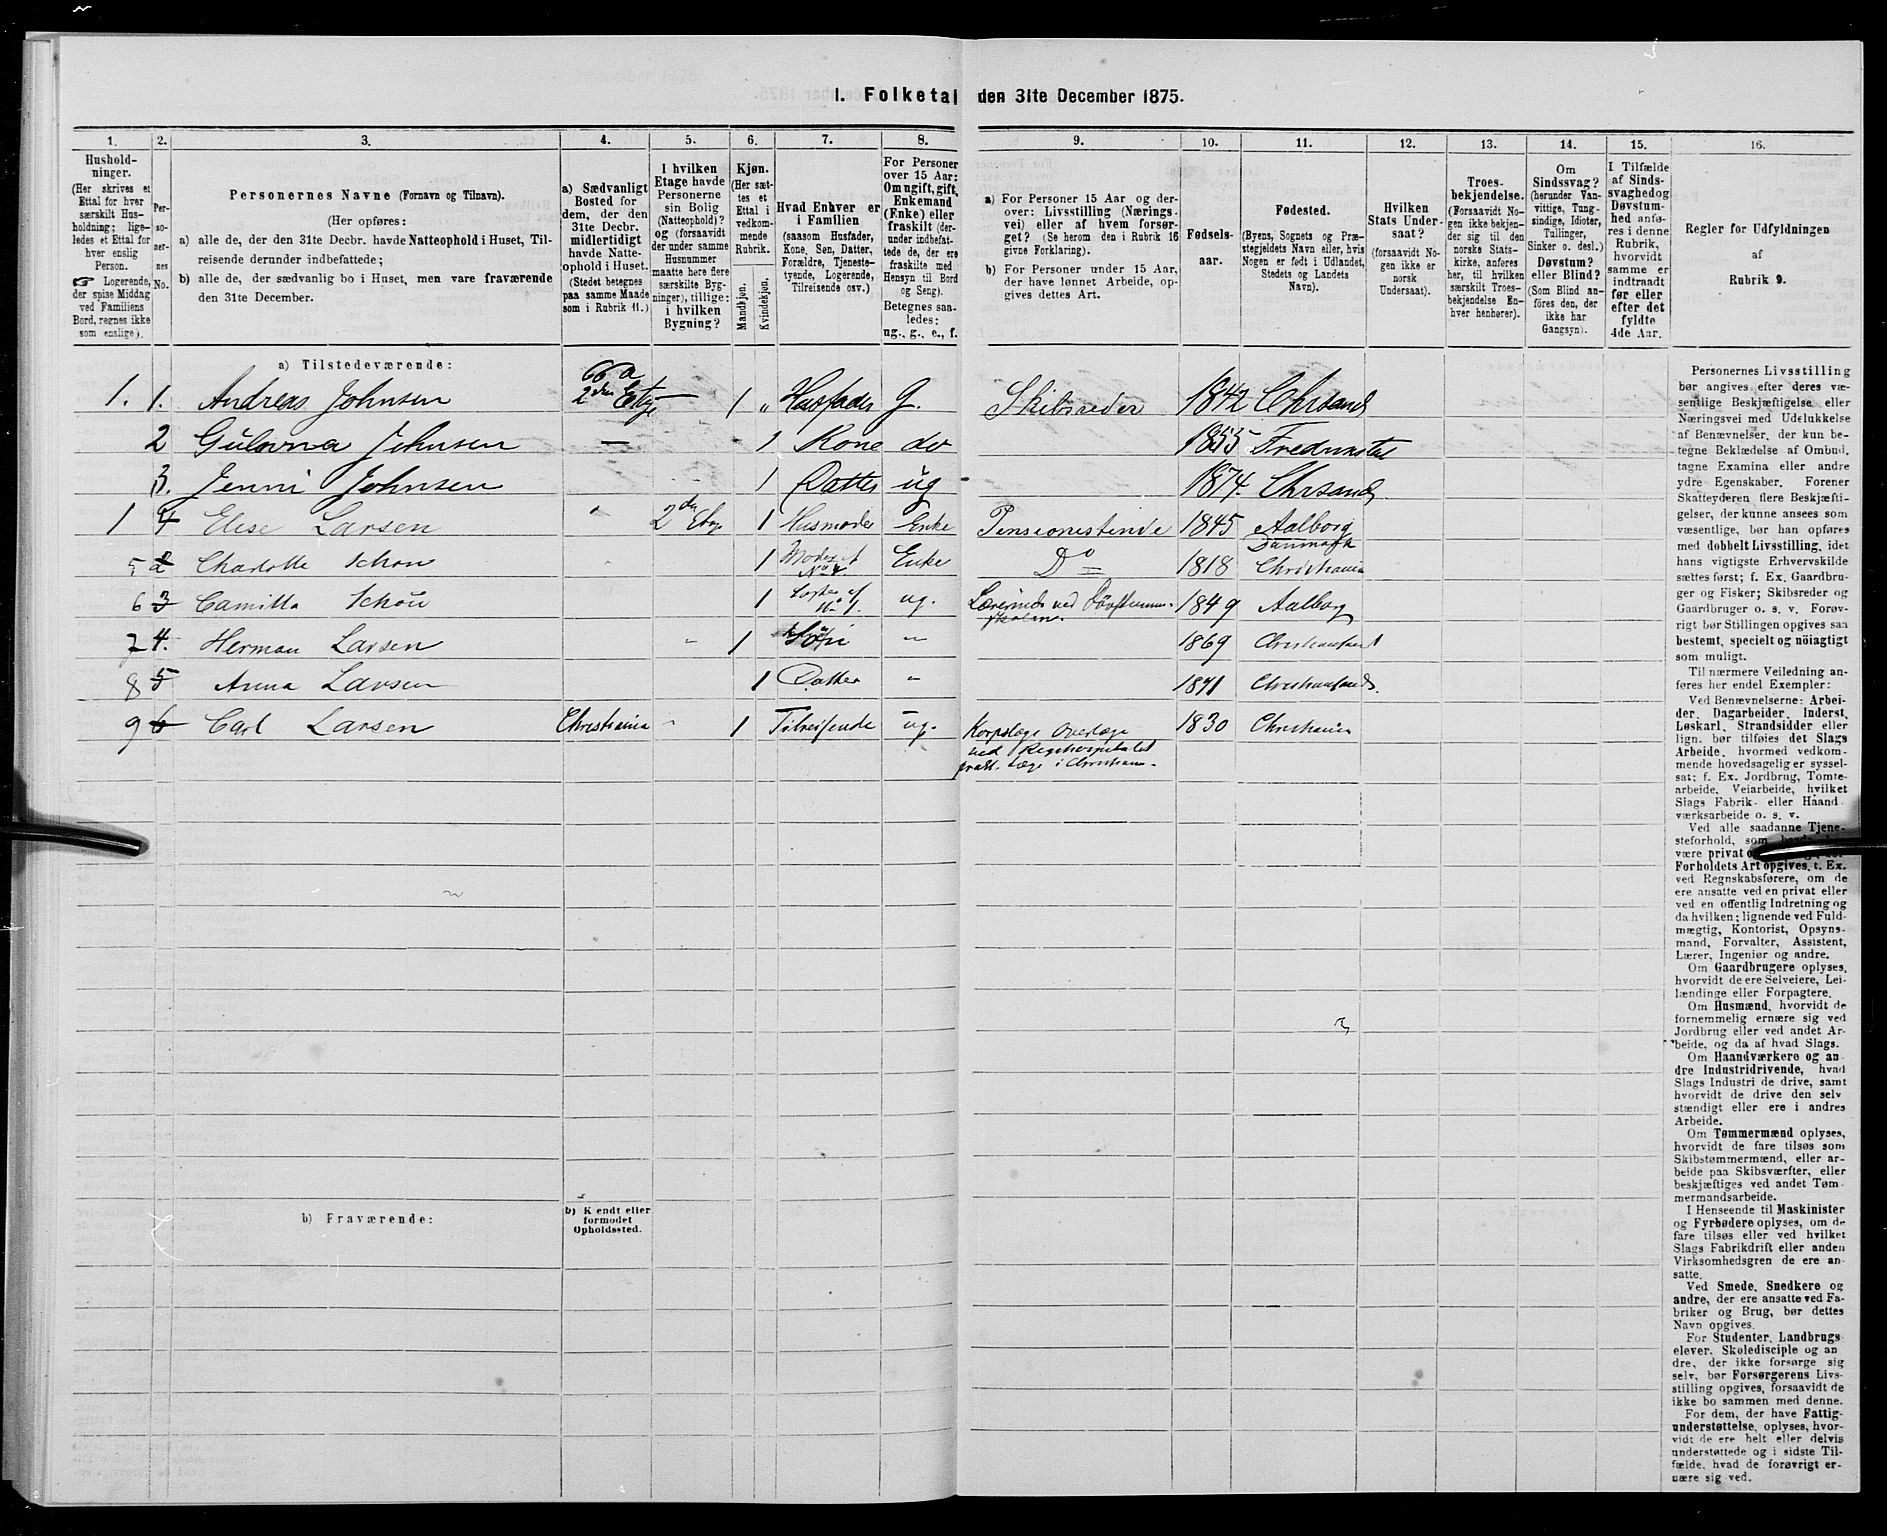 I. Folketal den 31te December 1875.
1. 2. 3. 4. 5. 6. 7. 8. 9. 10. 11. 12. 13. 14. 15. 16.
Hushold-
ninger.
(Her skrives et
Ettal for hver
særskilt Hus-
holdning; lige-
ledes et Ettal for
hver enslig
Person.
☞ Logerende,
der spise Middag
ved Familiens
Bord, regnes ikke
som enslige).
Per-
so-
ner-
nes
No.
Personernes Navne (Fornavn og Tilnavn).
(Her opføres:
a) alle de, der den 31te Decbr. havde Natteophold i Huset, Til-
reisende derunder indbefattede;
b) alle de, der sædvanlig bo i Huset, men vare fraværende
den 31te December.
a) Sædvanligt
Bosted for
dem, der den
31te Decbr.
midlertidigt
havde Natte-
ophold i Huset.
(Stedet betegnes
paa samme Maade
som i Rubrik 11.)
I hvilken
Etage havde
Personerne
sin Bolig
(Natteophold)?
og (forsaavidt
der under samme
Husnummer
maatte høre flere
særskilte Byg-
ninger), tillige:
i hvilken
Bygning?
Kjøn.
(Her sæt-
tes et
Ettal i
vedkom-
mende
Rubrik.
Mandkjøn.
Kvindekjøn.
Hvad Enhver er
i Familien
(saasom Husfader,
Kone, Søn, Datter,
Forældre, Tjeneste-
tyende, Logerende,
Tilreisende osv.)
For Personer
over 15 Aar:
Om ugift, gift,
Enkemand
(Enke) eller
fraskilt (der-
under indbefat-
tede de, der ere
fraskilte med
Hensyn til Bord
og Seng).
Betegnes saa-
ledes:
ug., g., e., f.
a) For Personer 15 Aar og der-
over: Livsstilling (Nærings-
vei) eller af hvem forsør-
get? (Se herom den i Rubrik 16
givne Forklaring).
b) For Personer under 15 Aar,
der have lønnet Arbeide, op-
gives dettes Art.
Fødsels-
aar.
Fødested.
(Byens, Sognets og Præ-
stegjeldets Navn eller, hvis
Nogen er født i Udlandet,
Stedets og Landets
Navn).
Hvilken
Stats Under-
saat?
(forsaavidt No-
gen ikke er
norsk
Undersaat).
Troes-
bekjendelse.
(Forsaavidt No-
gen ikke bekjen-
der sig til den
norske Stats-
kirke, anføres
her, til hvilken
særskilt Troes-
bekjendelse En-
hver henhører).
Om
Sindssvag?
(herunder Van-
vittige, Tung-
sindige, Idioter,
Tullinger,
Sinker o. desl.)
Døvstum?
eller Blind?
(Som Blind an-
føres den, der
ikke har
Gangsyn).
I Tilfælde
af Sinds-
svaghed og
Døvstum-
hed anfø-
res i denne
Rubrik,
hvorvidt
samme er
indtraadt
før eller
efter det
fyldte
4de Aar.
Regler for Udfyldningen
af
Rubrik 9.
a) Tilstedeværende:
66 a
1. 1. Andreas Johnsen 2den Etage 1 " Husfader G. Skibsreder 1842 Chrsand
2 Gulovna Johnsen — 1 Kone do 1855 Fredriksstad
3. Jenni Johnsen 1 Datter ug 1874. Chrsand
1 4 Elise Larsen " 2den Etag 1 Husmoder Enke Pensionestinde 1845 Aalborg
Danmark
5 2 Charlotte Schøn 1 Moder af No 4. Enke Do 1818 Christiania
6 3 Camilla Schøn 1 Søster af No 1. ug. Lærerinde ved Døvstumme-
skolen. 1849 Aalborg
7 4. Herman Larsen " 1 Søn " 1869 Christiansand
8 5 Anna Larsen 1 Datter " 1871 Christiansand.
9 6 Carl Larsen Christiania " 1 Tilreisende ug. Korpslæge Overlæge
ved Rigshospitalet
prakt. Læge i Christiania 1830 Christiania
b) Fraværende:
b) Kjendt eller
formodet
Opholdssted.
Personernes Livsstilling
bør angives efter deres væ-
sentlige Beskjæftigelse eller
Næringsvei med Udelukkelse
af Benævnelser, der kun be-
tegne Beklædelse af Ombud,
tagne Examina eller andre
ydre Egenskaber. Forener
Skatteyderen flere Beskjæfti-
gelser, der kunne ansees som
væsentlige, bør han opføres
med dobbelt Livsstilling, idet
hans vigtigste Erhvervskilde
sættes først; f. Ex. Gaardbru-
ger og Fisker; Skibsreder og
Gaardbruger o. s. v. Forøv-
rigt bør Stillingen opgives saa
bestemt, specielt og nöiagtigt
som muligt.
Til nærmere Veiledning an-
føres her endel Exempler:
Ved Benævnelserne: Arbei-
der, Dagarbeider, Inderst,
Løskarl, Strandsidder eller
lign. bør tilføies det Slags
Arbeide, hvormed vedkom-
mende hovedsagelig er syssel-
sat; f. Ex. Jordbrug, Tomte-
arbeide, Veiarbeide, hvilket
Slags Fabrik- eller Haand-
værksarbeide o. s. v.
Ved alle saadanne Tjene-
steforhold, som
være privat
Forholdets Art opgives, t. Ex.
ved Regnskabsførere, om de
ere ansatte ved en privat eller
ved en offentlig Indretning og
da hvilken; lignende ved Fuld-
mægtig, Kontorist, Opsyns-
mand, Forvalter, Assistent,
Lærer, Ingeniør og andre.
Om Gaardbrugere oplyses,
hvorvidt de ere Selveiere, Lei-
lændinge eller Forpagtere.
Om Husmænd, hvorvidt de
fornemmelig ernære sig ved
Jordbrug eller ved andet Ar-
beide, og da af hvad Slags.
Om Haandværkere og an-
dre Industridrivende, hvad
Slags Industri de drive, samt
hvorvidt de drive den selv-
stændigt eller ere i andres
Arbeide.
Om Tømmermænd oplyses,
hvorvidt de fare tilsøs som
Skibstømmermænd, eller ar-
beide paa Skibsværfter, eller
beskjæftiges ved andet Tøm-
mermandsarbeide.
I Henseende til Maskinister
og Fyrbødere oplyses, om de
fare tilsøs eller ved hvilket
Slags Fabrikdrift eller anden
Virksomhedsgren de ere an-
satte.
Ved Smede, Snedkere og
andre, der ere ansatte ved Fa-
briker og Brug, bør dettes
Navn opgives.
For Studenter, Landbrugs-
elever, Skoledisciple og an-
dre, der ikke forsørge sig
selv, bør Forsørgerens Livs-
stilling opgives, forsaavidt de
ikke bo sammen med denne.
For dem, der have Fattig-
understøttelse, oplyses, hvor-
vidt de ere helt eller delvis
understøttede og i sidste Til-
fælde, hvad de forøvrigt er-
nære sig ved.